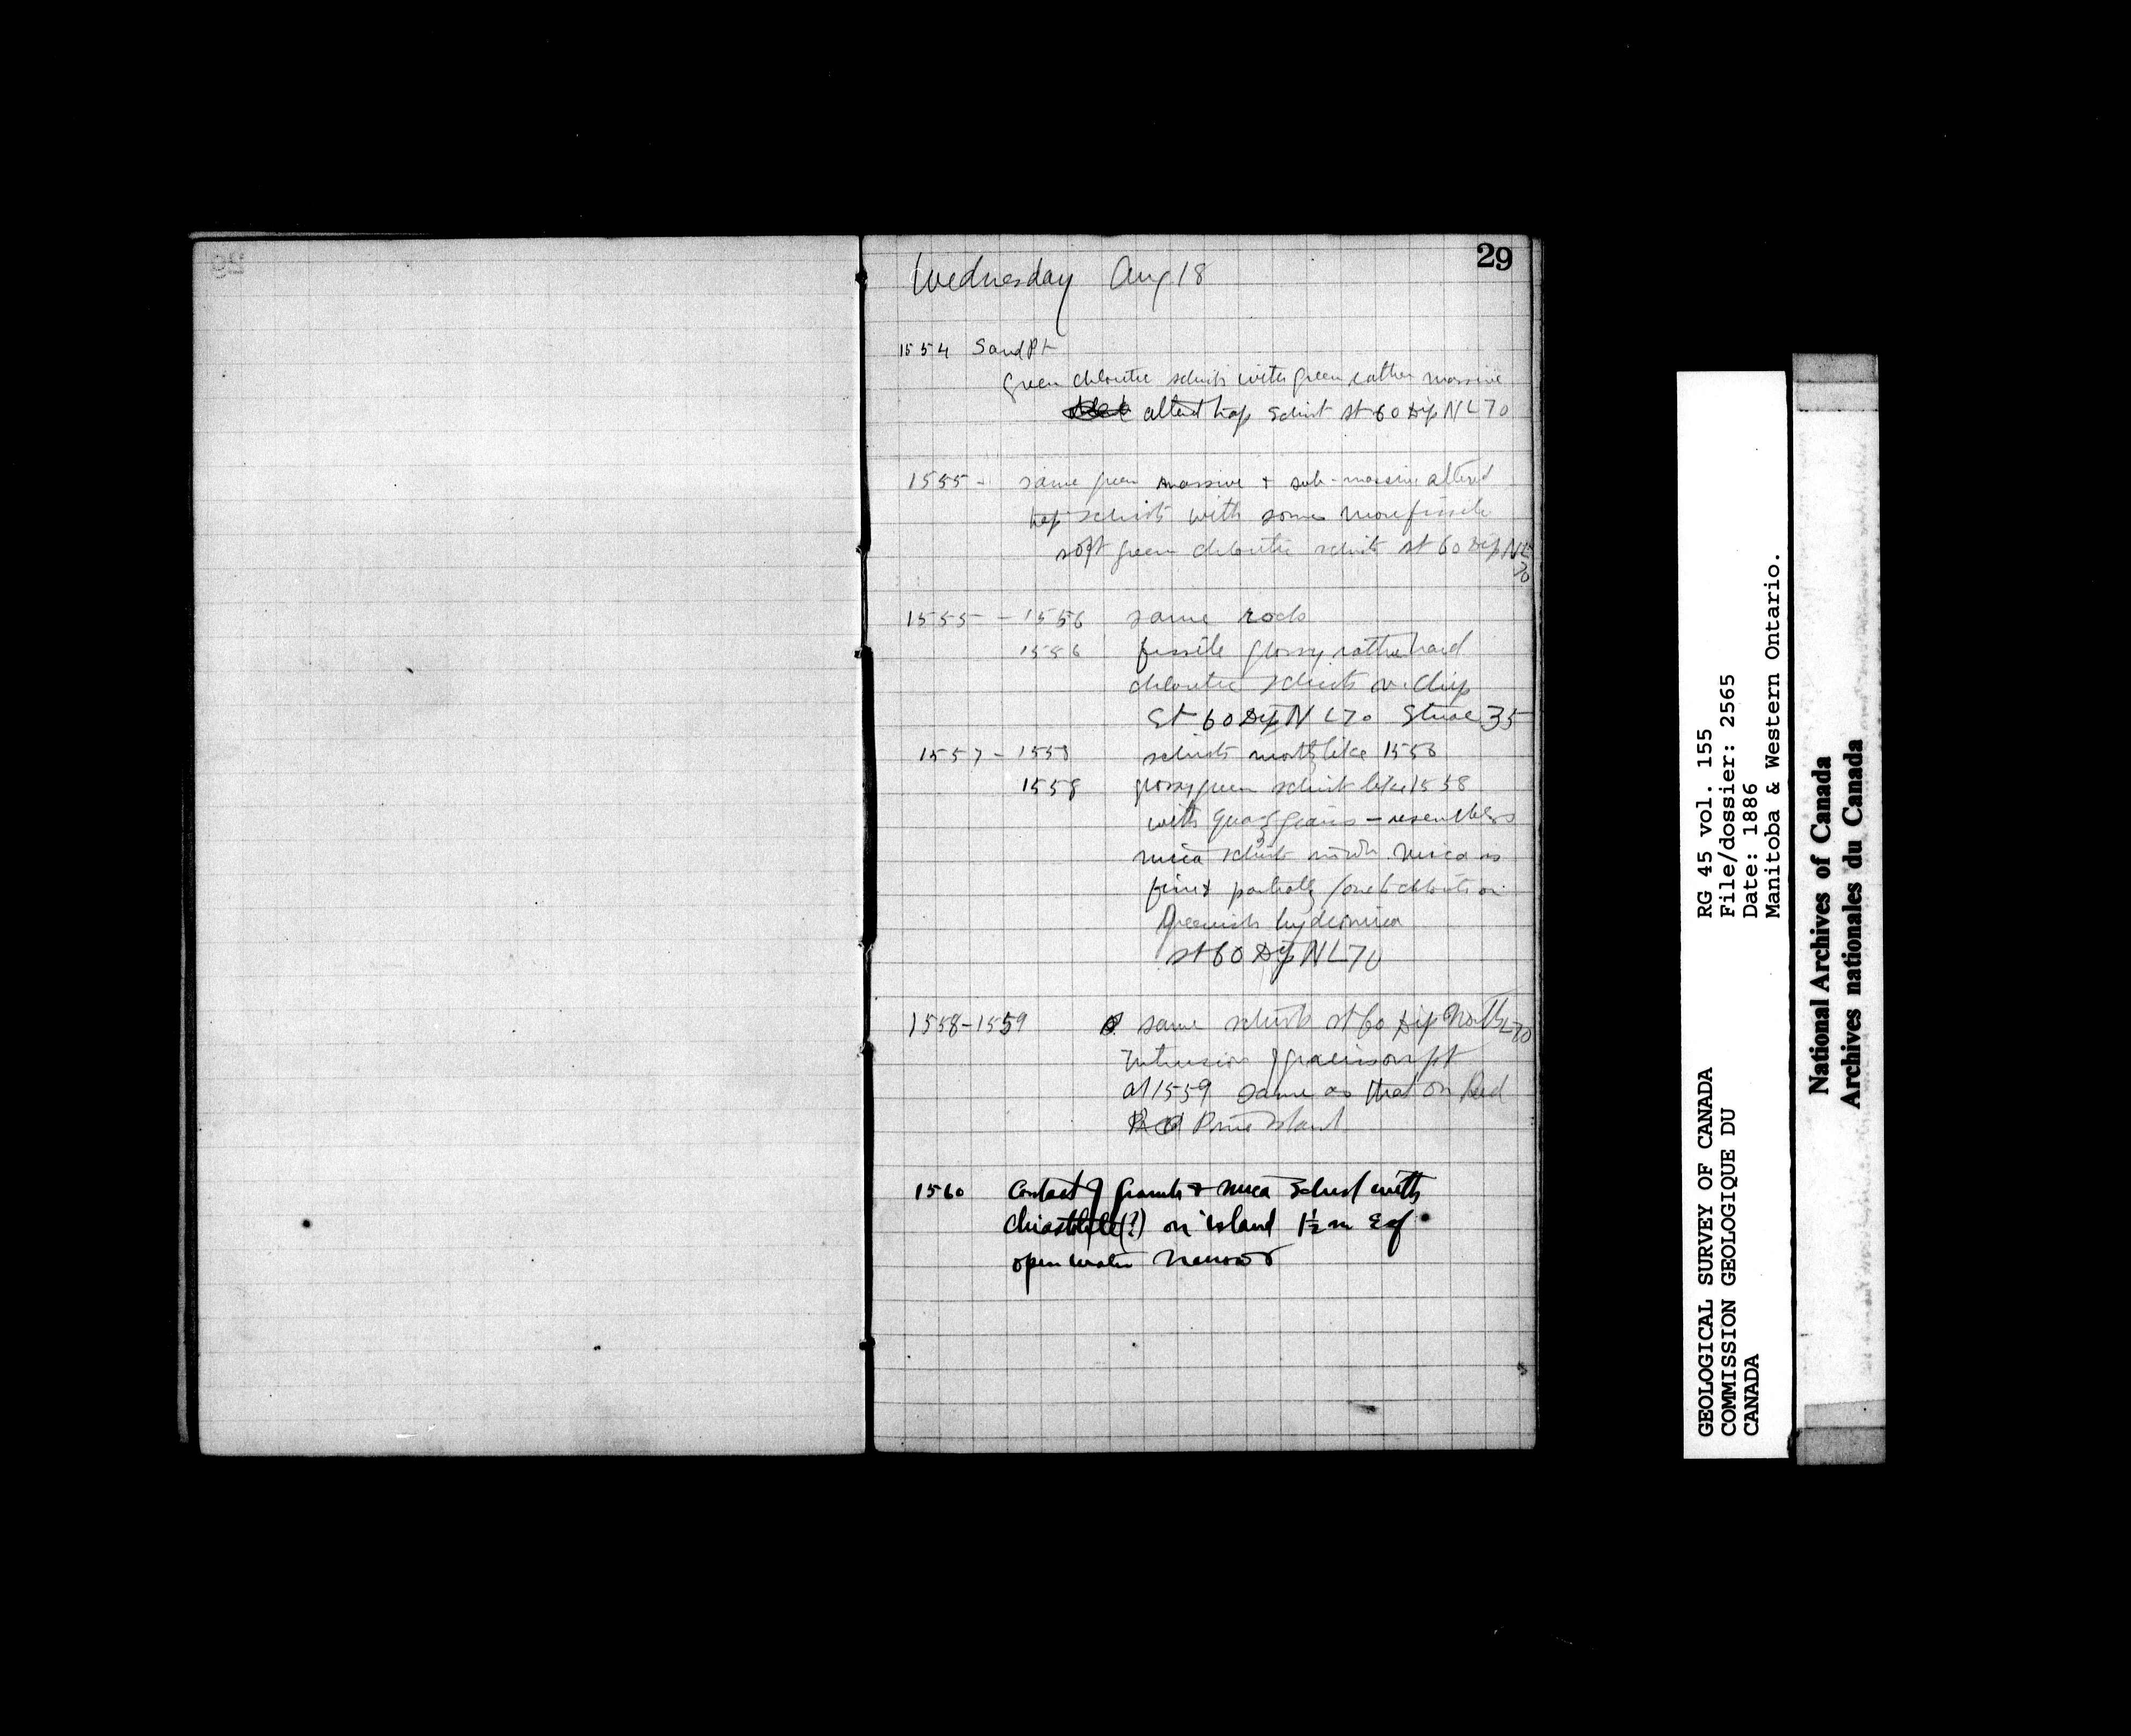 29
Wednesday Aug 18
1554 Sand Pt
Green chloritic schists with green rather massive
altered trap schist st 60 Dip N L 70
1555 - same green massive + sub-massive altered
trap schists with some more fissile
soft green chloritic schists st 60 Dip N L
70
1555 - 1556 same rocks
1556 fissile glossy rather hard
chloritic schists
St 60 Dip N L 70 Striae 35
1557 - 1558 schists mostly like 1556
1558 glossy green schist like 1558
with quartz grains - resembles
mica schist mica is
fine & partially gone to chlorite or
Greenish hydromica
st 60 Dip N L 70
1558 - 1559 same schists st 60 Dip North L 70
Intrusion of gneiss on pt
at 1559 same as that on Red
Pine Island
1560 Contact of Granite & mica schist with
chiastolite (?) on island 1½ m E of
open water narrows
GEOLOGICAL SURVEY OF CANADA
COMMISSION GEOLOGIQUE DU
CANADA
RG 45 vol. 155
File/dossier: 2565
Date: 1886
Manitoba & Western Ontario.
National Archives of Canada
Archives nationales du Canada